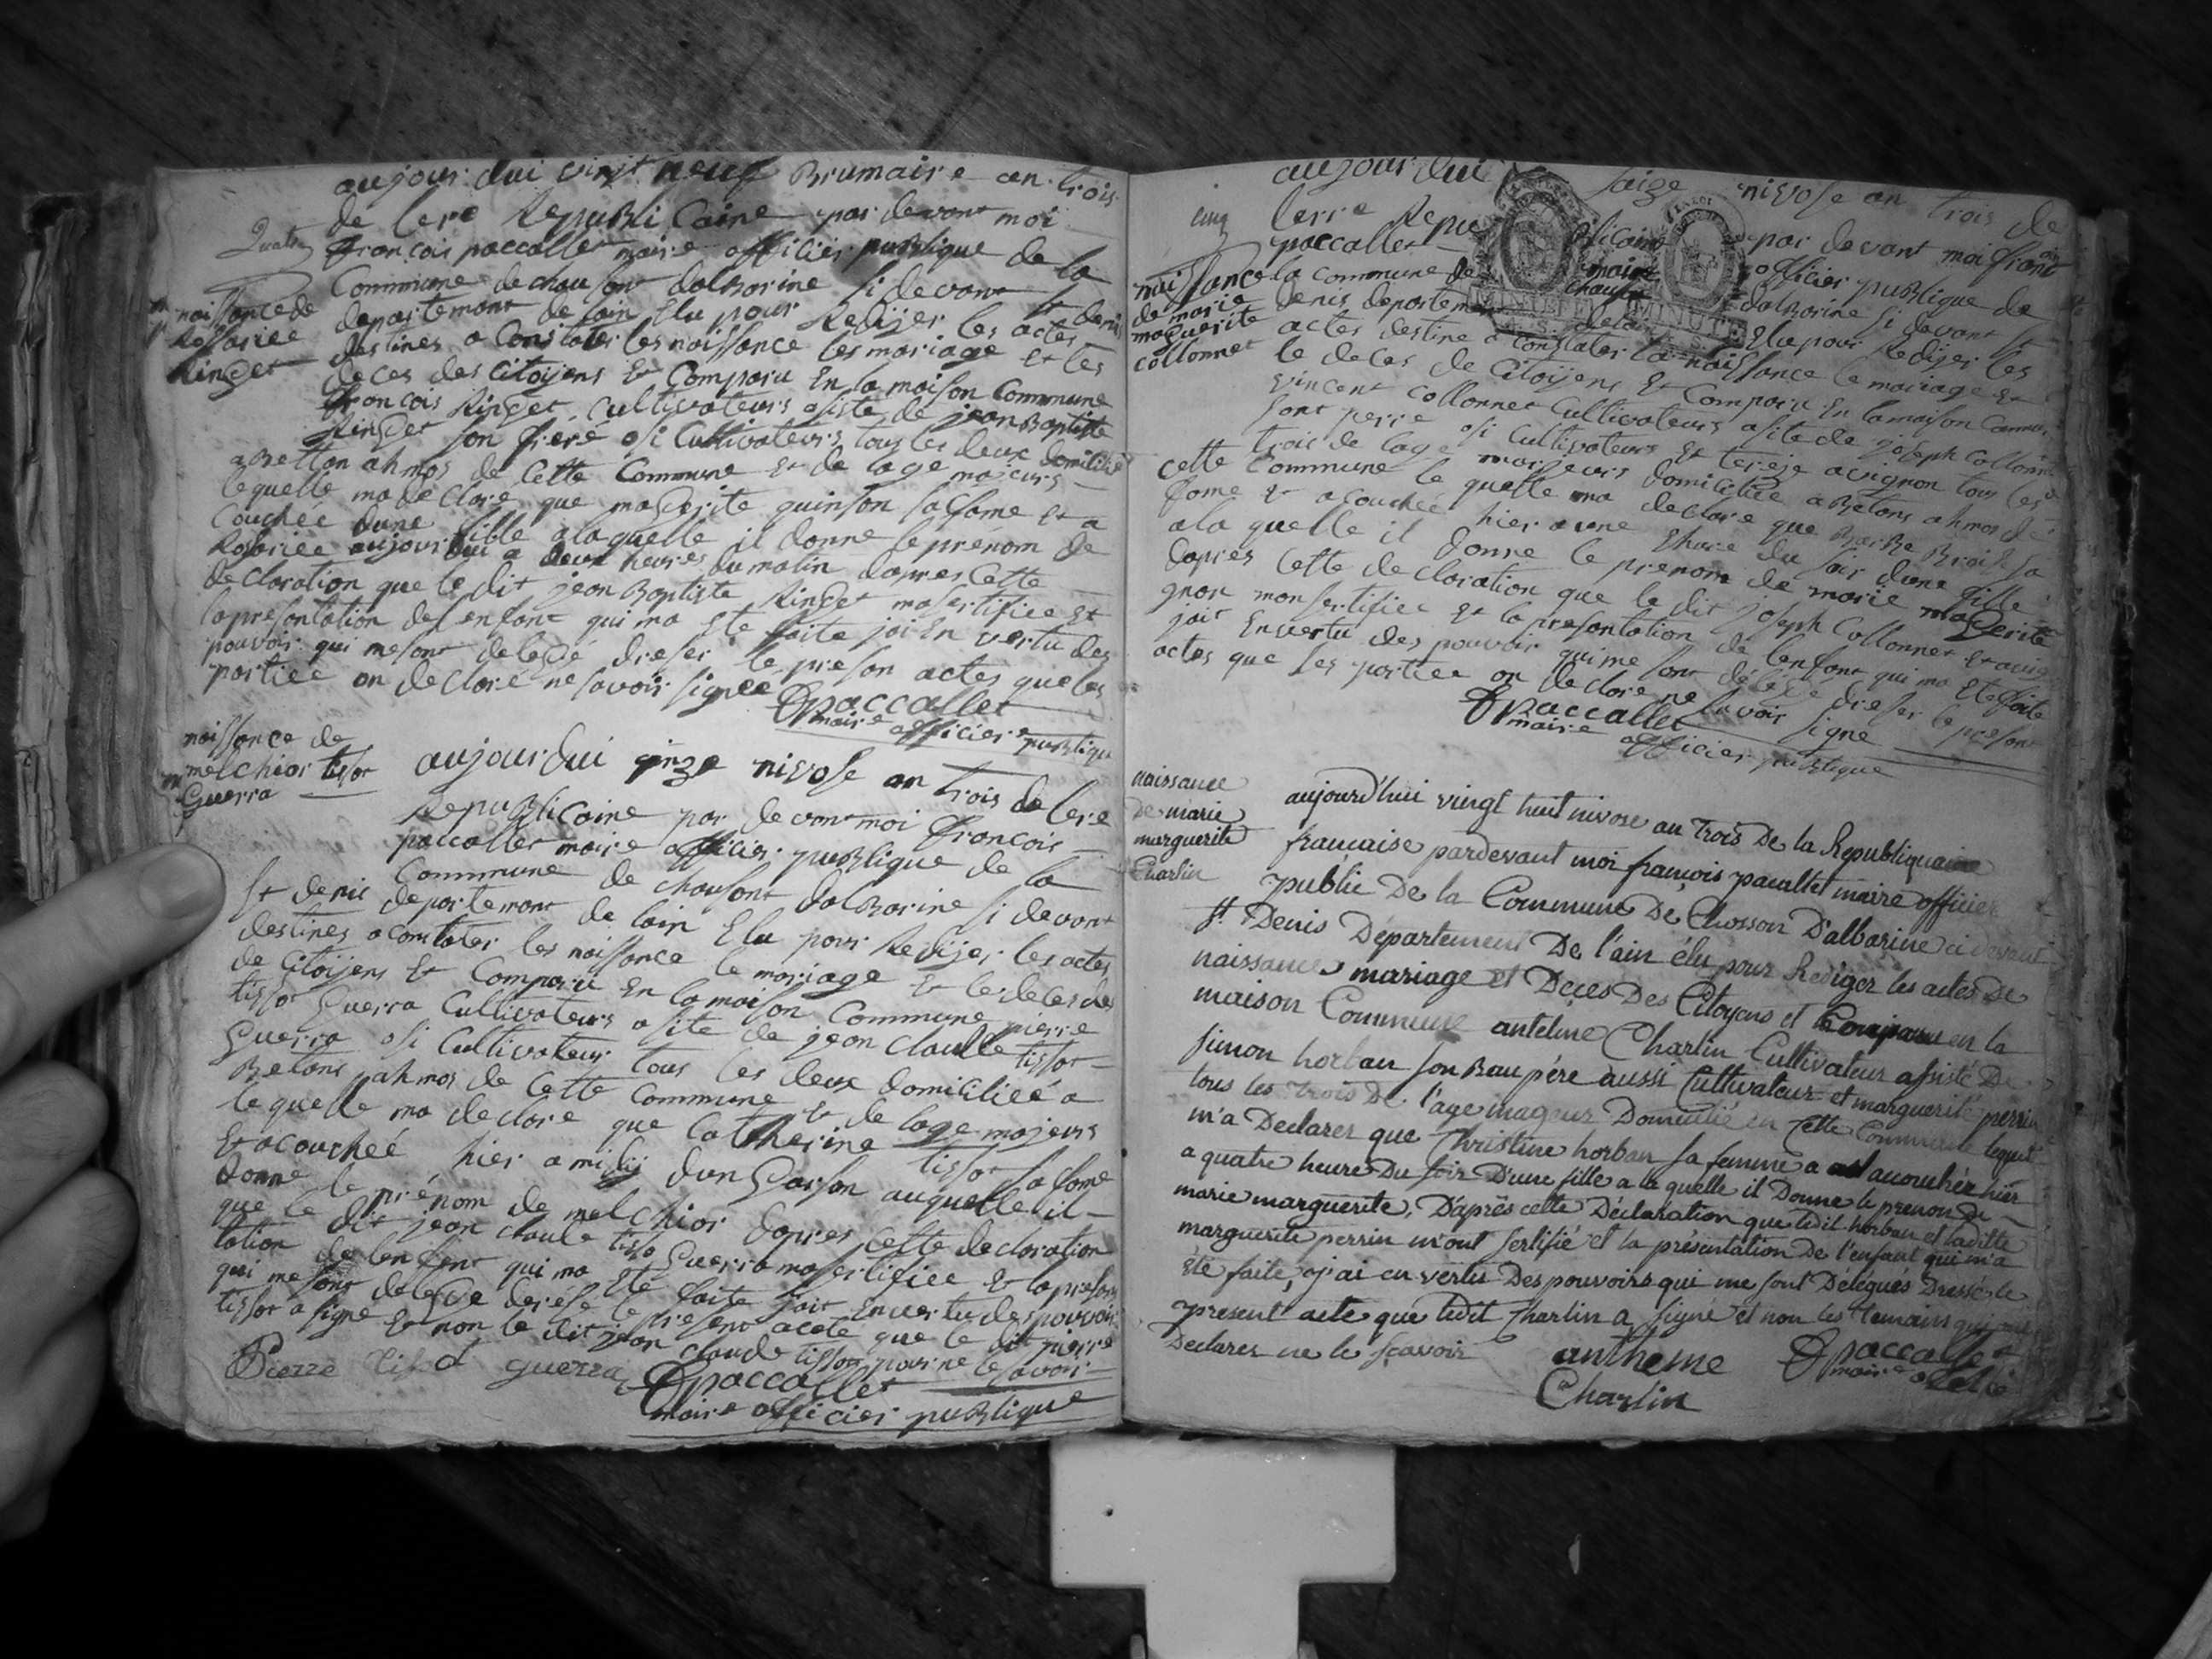 aujour dui vint neuf Brumaire an trois
de lere Republi Caine par devant moi
Quatre
francois paccallet maire officiers publique de la
Commune de chausont dalbarine si devant St denis
departement de lain Elu pour Redijer les actes
naissance de
Rossariee
Ringet
destines a Constater les naissance les mariage et les
deces des Citoyens Et Comparu En la maison Commune
francois Ringet Cultivateurs asiste de jean Baptiste
Ringet son frere osi Cultivateurs tous les deux domicilie
a Betton ahmos de Cette Commune Et de lage majeurs
lequelle ma declare que magerite quinson sa fame Et a
Couchée dune fille a laquelle il donne le prenom de
Rosariee aujour dui a deux heures du matin dapres Cette
declaration que le dit jean Baptiste Ringet ma sertifiee Et
la presentation de lenfant qui ma Ete faite jai En vertu des
pouvoir qui me sont delegé dreser le presan actes que les
partiee on declare ne savoir signee
fpaccallet
maire officier publique
naissance de
melchior tissot
Guerra
aujour dui qinze nivose an trois de lere
Republicaine par devant moi francois
paccallet maire officier publique de la
Commune de chausont dalbarine si devant
St denis departement de lain Elu pour Redijer les actes
destines a constater les naissance le mariage Et le deces des
de Citoijens Et Comparu En la maison Commune pierre
tissot Guerra Cultivateurs asite de jean claude tissot
Guerra osi Cultivateur tous les deux domiciliéé a
Betons ahmos de Cette Commune Et de lage majeurs
le quelle ma declare que Catherine tissot sa fame
Et acouchéé hier a midij dun Garson auquelle il
donne le prénom de melchior dapres cette declaration
que le dit jean claude tissot Guerra ma sertifiee Et la presen
tation de lenfant qui ma Ete faite jait En vertu des pouvoir
qui me sont delegee derese le presant acete que le dit pierre
tissot a signe Et non le dit jean claude tissot pour ne le savoir
Pierre tisot guerra
fpaccallet
maire officier publique
aujour dui saize nivose an trois de
cinq
lerre Republicaine par devant moi franc
paccallet maire officier publique de
naissance
de marie
magerite
collonnet
la Commune de chausont dalbarine si devant St
denis departement de lain Elu pour Redijer les
actes destine a constater la naissance le mariage Et
le deces de Citoijens Et Comparu En la maison Commu
vincent collonnet Cultivateurs asite de joseph Collonnet
sont perre osi Cultivateurs Et tereze avignon tous les
trois de lage majeurs domiciliee a Betons ahmos de
cette Commune le quelle ma declare que Barbe Broit sa
fame Et acouchéé hier a une Ehure du soir dune fille
a la quelle il donne le prenom de marie magerite
dapres Cette declaration que le dit joseph Collonnet Et avig
gnon mon sertifiee Et la presentation de lenfant qui ma Ete faite
jait En vertu des pouvoir qui me sont delege dreser le presant
actes que les partiee on declare ne savoir signe
fpaccallet
maire officier publique
naissance
de marie
marguerite
Charlin
aujourd'hui vingt huit nivose an trois De la Republiquaine
francaise pardevant moi françois pacallet maire officier
public De la Commune De Chosson D'albarine ci devant
st Denis Département De l'ain élu pour Rediger les actes De
naissance mariage et Deces Des Citoyens et Comparu en la
maison Commune antelme Charlin Cultivateur assisté De
simon horban son Beau père aussi Cultivateur et marguerite perrin
tous les trois De l'age mageur Domicilié en cette Commune lequel
m'a Declarer que Christine horban sa femme a accouchée hier
a quatre heure Du soir D'une fille a la quelle il Donne le prenom De
marie marguerite, D'après cette Déclaration que ledit horban et laditte
marguerite perrin m'ont sertifié et la présentation De l'enfant qui m'a
été faite, j'ai en vertu Des pouvoirs qui me sont Délégués Dressé le
present acte que ledit Charlin a signé et non les temains qui
Declarer ne le sçavoir
antheme
Charlin
fpaccallet
maire officie